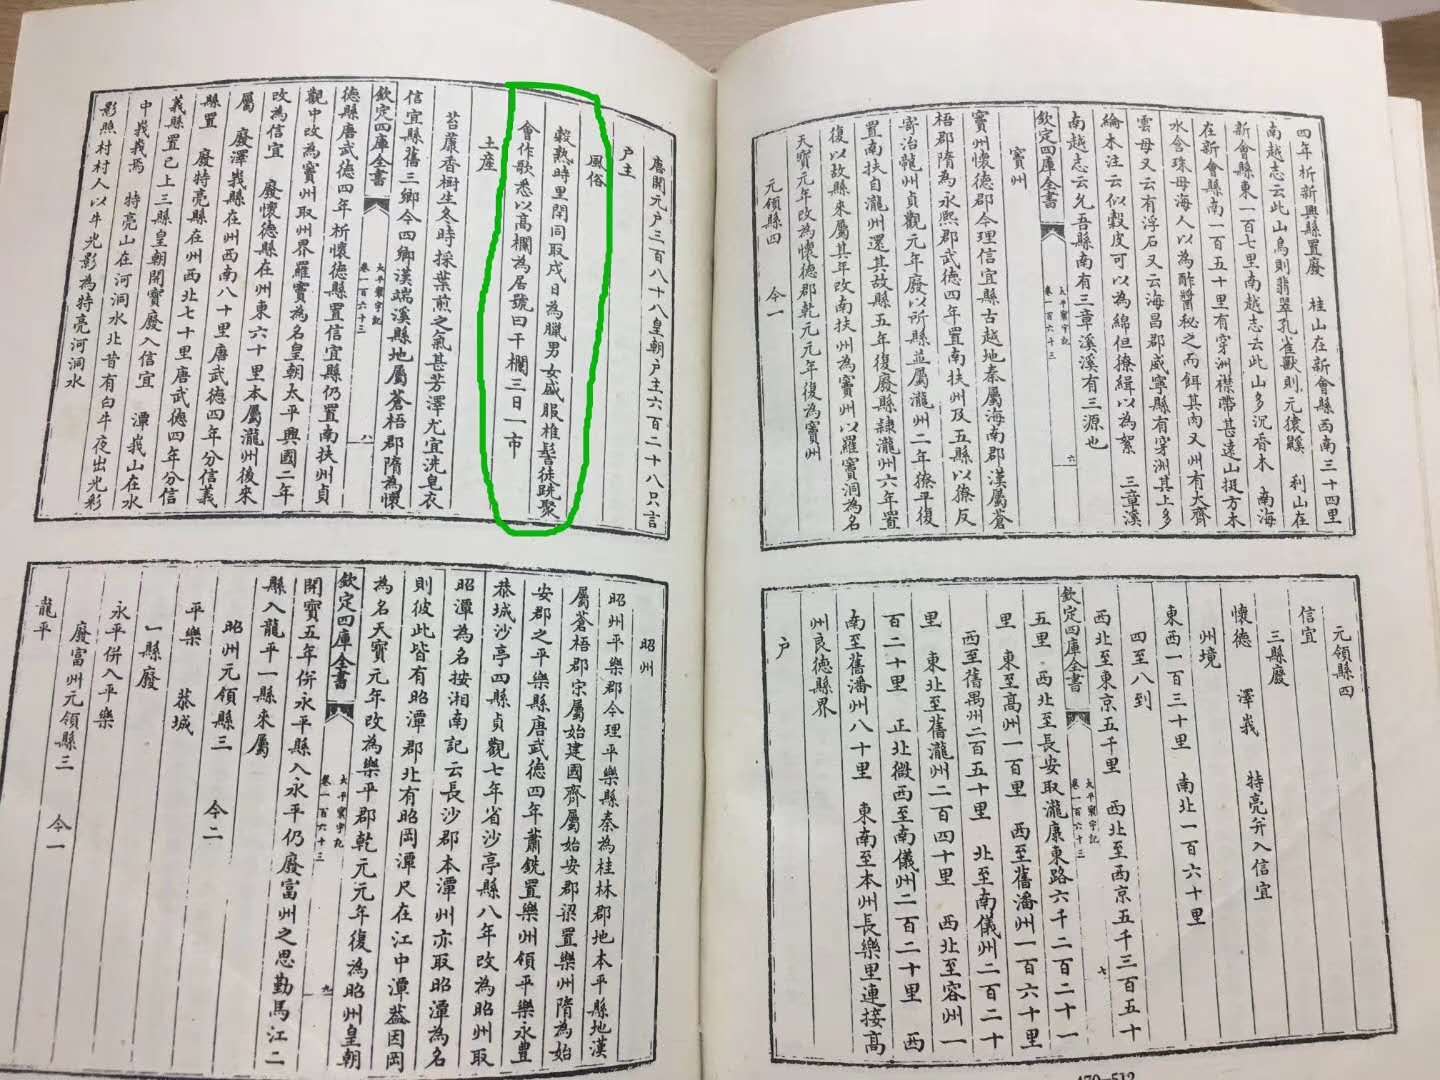 四年析新興縣置廢　桂山在新會縣西南三十四里
南越志云此山鳥則翡翠孔雀獸則元猨　利山在
新會縣東一百七里南越志云此山多沉香木　南海
在新會縣南一百五十里有穿洲襟帶甚遠山挺方木
水含珠母海人以為酢醬秘之而餌其肉又州有大齊
雲母又云有浮石又云海昌郡威寧縣有穿洲其上多
綸木注云似穀皮可以為綿但獠緝以為絮　三章溪
南越志云允吾縣南有三章溪溪有三源也
欽定四庫全書
太平寰宇記
卷一百六十三
六
竇州
竇州懷德郡今理信宜縣古越地秦屬海南郡漢屬蒼
梧郡隋為永熙郡武德四年置南扶州及五縣以獠反
寄治瀧州貞觀元年廢以所縣並屬瀧州二年獠平復
置南扶自瀧州還其故縣五年復廢縣隸瀧州六年置
復以故縣來屬其年改南扶州為竇州以羅竇洞為名
天寶元年改為懷德郡乾元元年復為竇州
元領縣四　今一
元領縣四
信宜
三縣廢
懷德　澤莪　特亮并入信宜
州境
東西一百三十里　南北一百六十里
四至八到
西北至東京五千里　西北至西京五千三百五十
欽定四庫全書
太平寰宇記
卷一百六十三
七
五里　西北至長安取瀧康東路六千二百二十一
里　東至高州一百里　西至舊潘州一百六十里
西至舊禺州二百五十里　北至南儀州二百二十
里　東北至舊瀧州二百四十里　西北至容州一
百二十里　正北微西至南儀州二百二十里　西
南至舊潘州八十里　東南至本州長樂里連接高
州良德縣界
户
470—512
唐開元户三百八十八皇朝户主六百二十八只言
户主
風俗
穀熟時里閈同取戌日為臘男女盛服椎髻徒跣聚
會作歌悉以高欄為居號曰干欄三日一市
土産
苔藨香樹生冬時採葉煎之氣甚芳澤尤宜洗皂衣
信宜縣舊三鄉今四鄉漢端溪縣地屬蒼梧郡隋為懷
欽定四庫全書
太平寰宇記
卷一百六十三
八
德縣唐武德四年析懷德縣置信宜縣仍置南扶州貞
觀中改為竇州取州界羅竇為名皇朝太平興國二年
改為信宜　廢懷德縣在州東六十里本屬瀧州後來
屬　廢澤莪縣在州西南八十里唐武德四年分信義
縣置　廢特亮縣在州西北七十里唐武德四年分信
義縣置已上三縣皇朝開寶廢入信宜　潭莪山在水
中莪莪焉　特亮山在河洞水北昔有白牛夜出光彩
影照村村人以牛光影為特亮河洞水
昭州
昭州平樂郡今理平樂縣秦為桂林郡地本平縣地漢
屬蒼梧郡宗屬始建國齊屬始安郡梁置樂州隋為始
安郡之平樂縣唐武德四年蕭銑置樂州領平樂永豊
恭城沙亭四縣貞觀七年省沙亭縣八年改為昭州取
昭潭為名按湘南記云長沙郡本潭州亦取昭潭為名
則彼此皆有昭潭郡北有昭岡潭尺在江中潭葢因岡
為名天寶元年改為樂平郡乾元元年復為昭州皇朝
欽定四庫全書
太平寰宇記
卷一百六十三
九
開寶五年併永平縣入永平仍廢富州之思勤馬江二
縣入龍平一縣來屬
昭州元領縣三　今二
平樂　恭城
一縣廢
永平併入平樂
廢富州元領縣三　今一
龍平